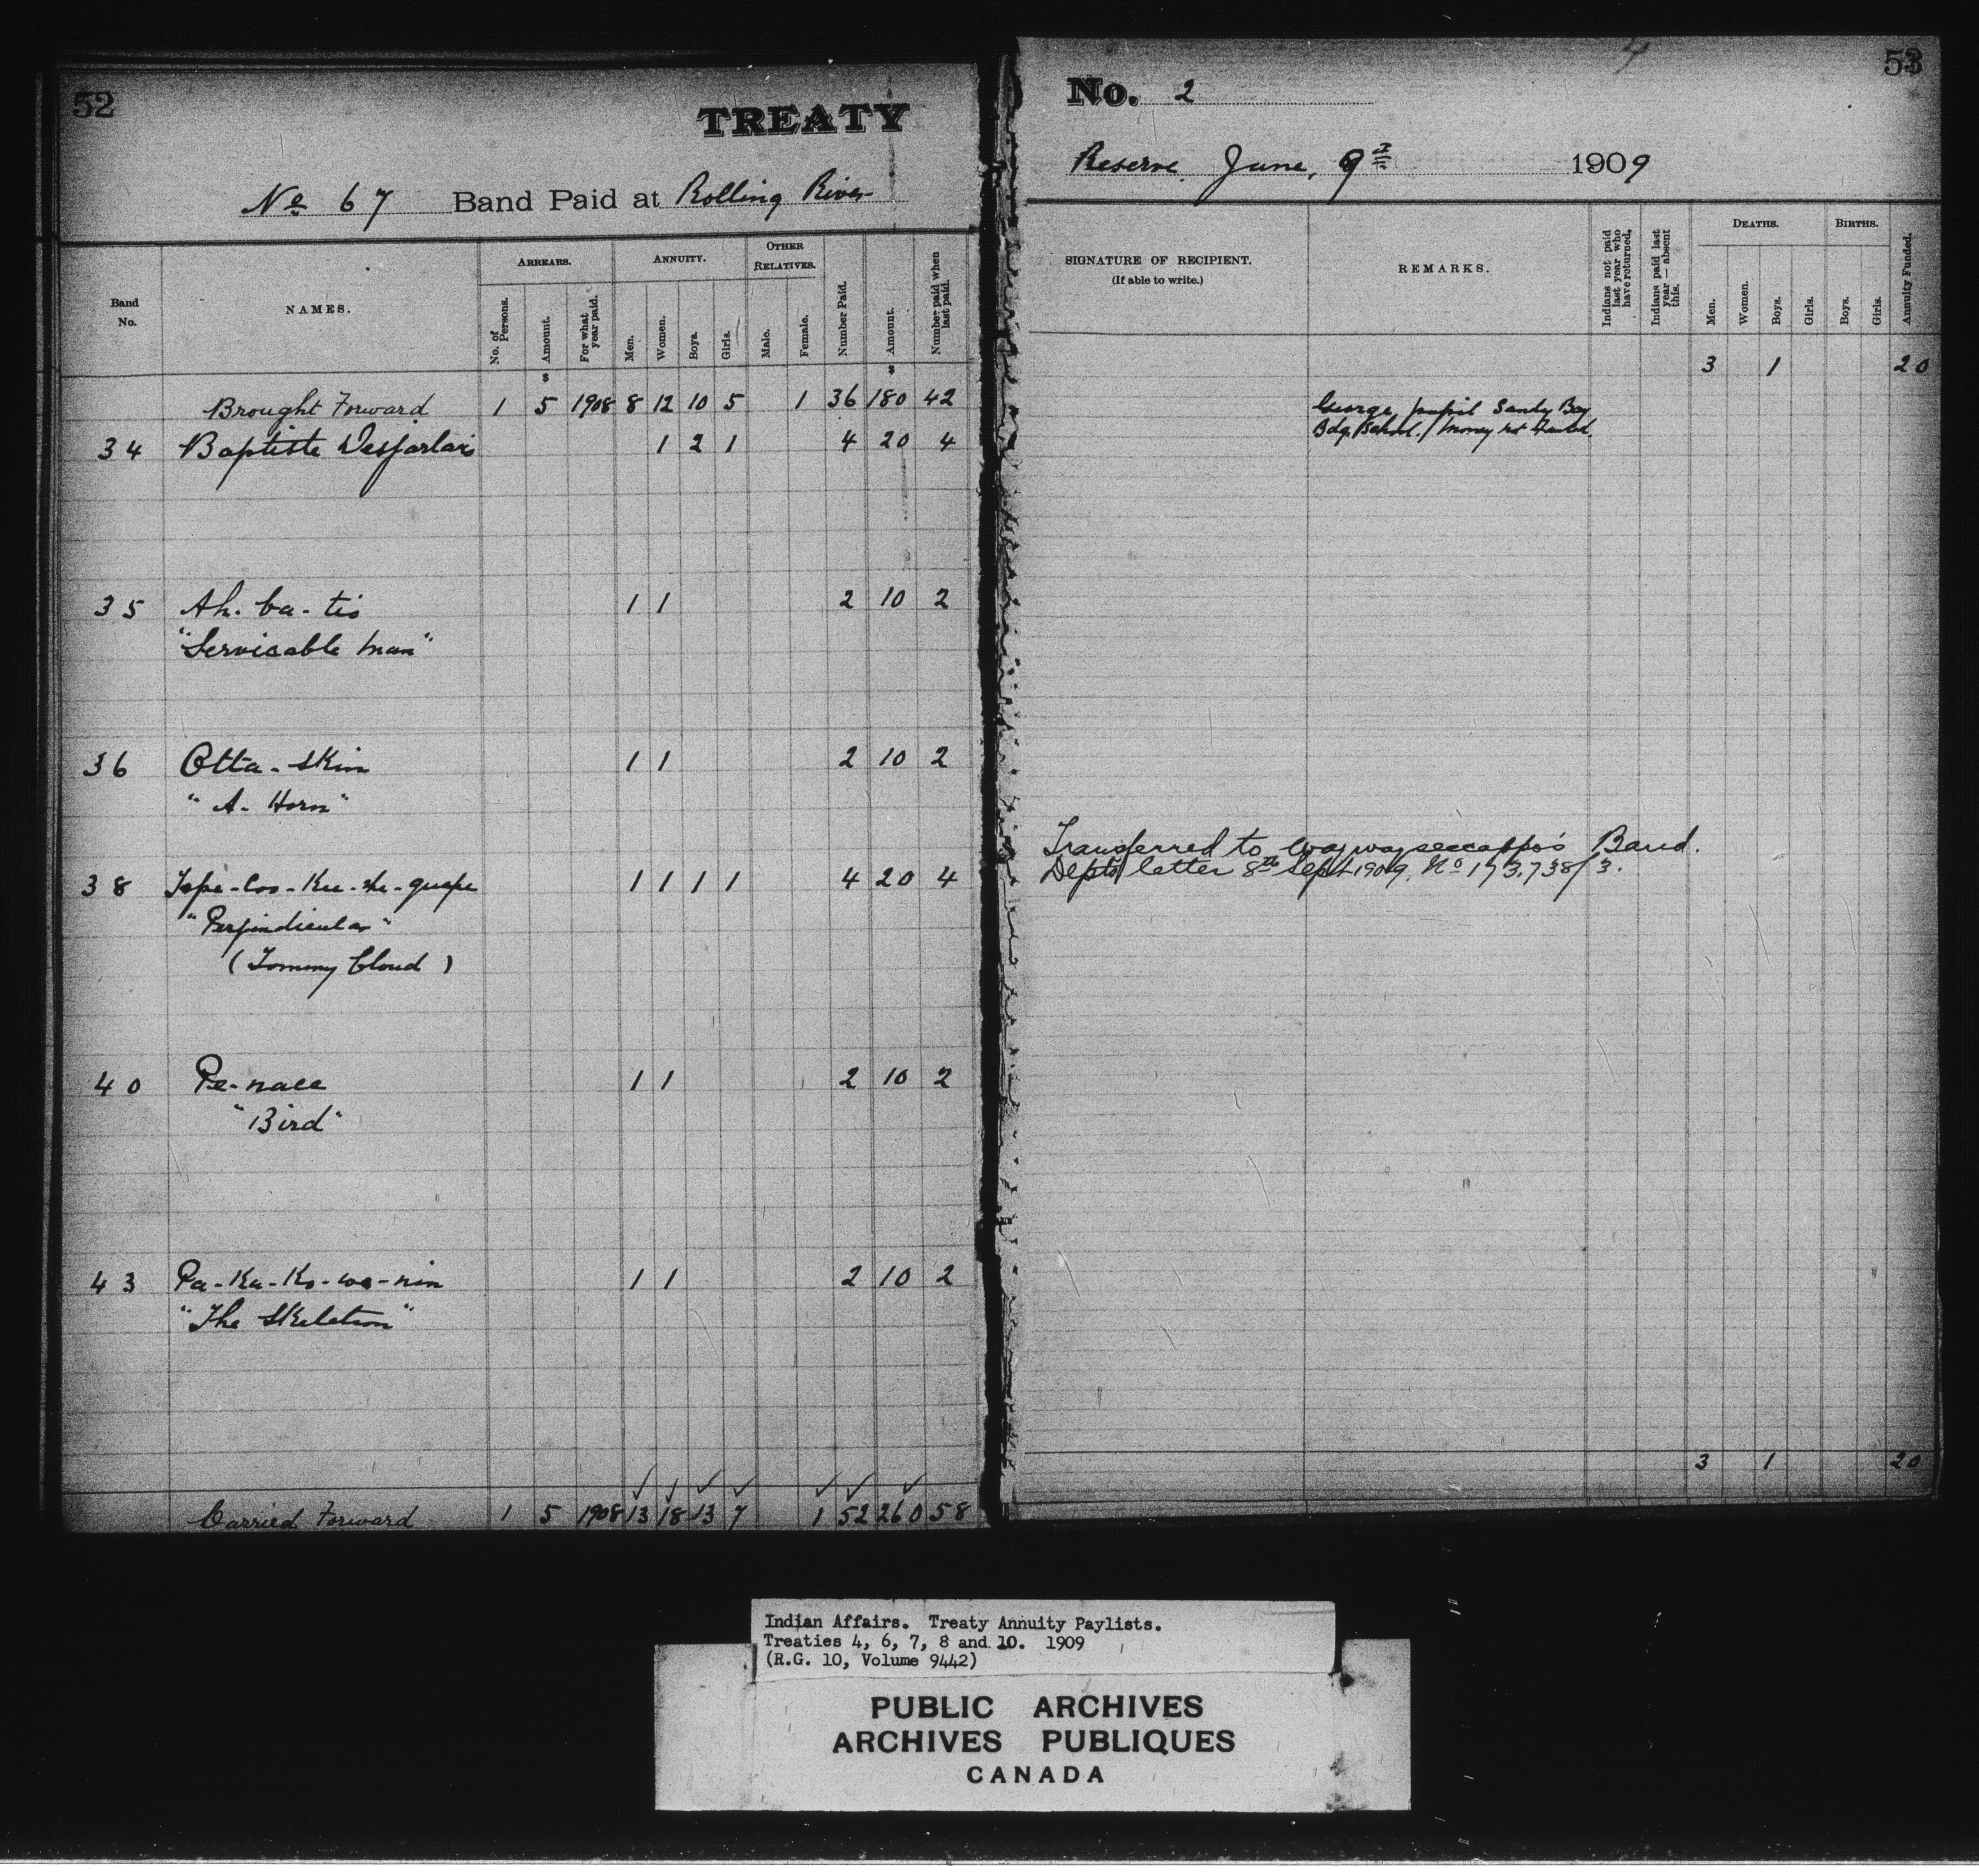 52
TREATY
No 67 Band Paid at Rolling River
Band No.
NAMES.
ARREARS.
No. of Persons.
Amount.
For what year paid.
ANNUITY.
Men.
Women.
Boys.
Girls.
OTHER RELATIVES.
Male.
Female.
Number Paid.
Amount.
Number paid when last paid.
$ $
Brought Forward 1 5 1908 8 12 10 5 1 36 180 42
34 Baptiste Desjarlais 1 2 1 4 20 4
35 Ah-ba-tis 1 1 2 10 2
"Servicable Man"
36 Otta-skin 1 1 2 10 2
"A-Horn"
38 1 1 1 1 4 20 4
"Perpindicular"
(Tommy Cloud)
40 Pe-nace 1 1 2 10 2
"Bird"
43 Pa-Ka-Ko-wa-nin 1 1 2 10 2
"The Skeleton"
Carried Forward 1 5 1908 13 18 13 7 1 52 260 58
53
No. 2
Reserve June, 9th 1909
SIGNATURE OF RECIPIENT.
(If able to write.)
REMARKS.
Indians not paid last year who have returned.
Indians paid last year — absent this.
DEATHS.
Men.
Women.
Boys.
Girls.
BIRTHS.
Boys.
Girls.
Annuity Funded.
3 1 20
George, pupil Sandy Bay
Bdg School. / Money not funded.
Transferred to Waywayseecappo's Band.
Depts letter 8th Sept 1909. No 173.738/3.
3 1 20
Indian Affairs. Treaty Annuity Paylists.
Treaties 4, 6, 7, 8 and 10. 1909
(R.G. 10, Volume 9442)
PUBLIC ARCHIVES
ARCHIVES PUBLIQUES
CANADA